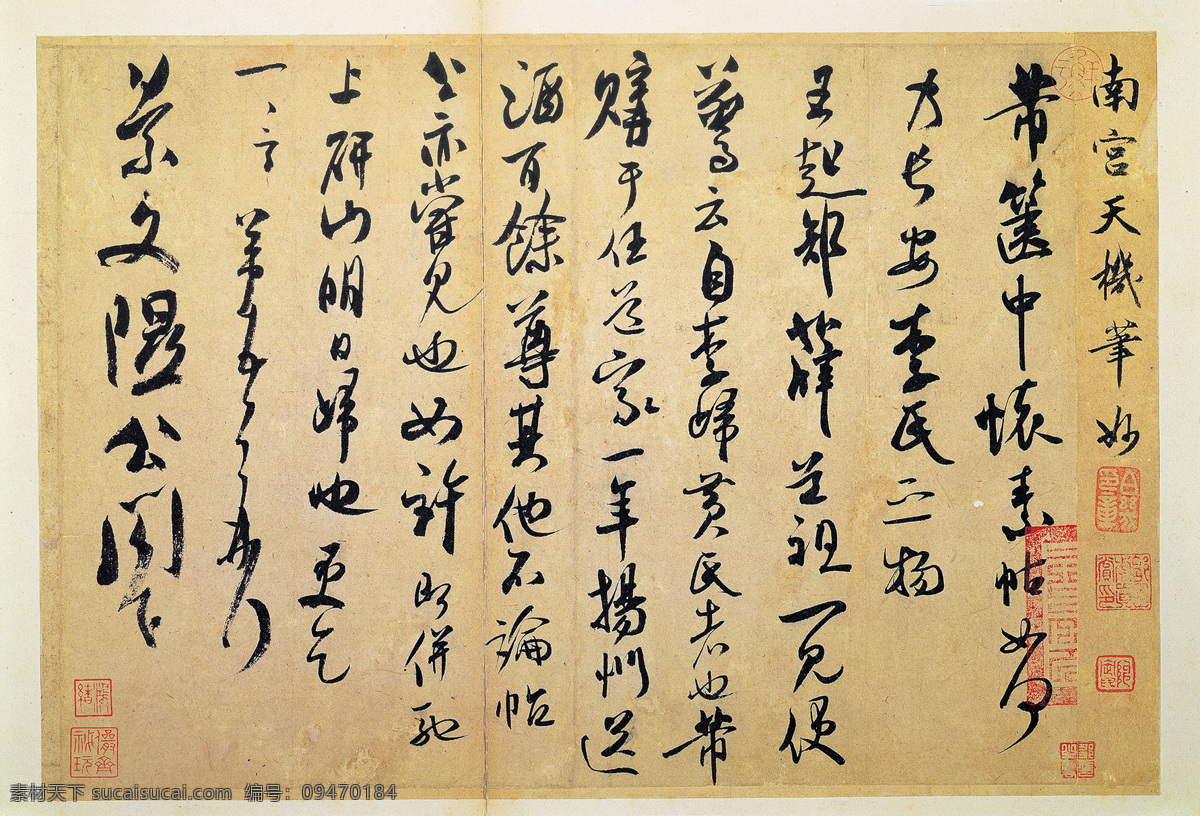 南宮天機筆妙
芾篋中懷素帖如何
乃長安李氏之物
王起部薛道祖一見便
驚云自李歸黄氏者也芾
購于任道家一年揚州送
酒百餘尊其他不論帖
公亦嘗見也如許即併馳
上研山明日歸也更乞
一言芾頓首再拜
景文隰公閣下
素材天下 sucaisucai.com 编号: 09470184